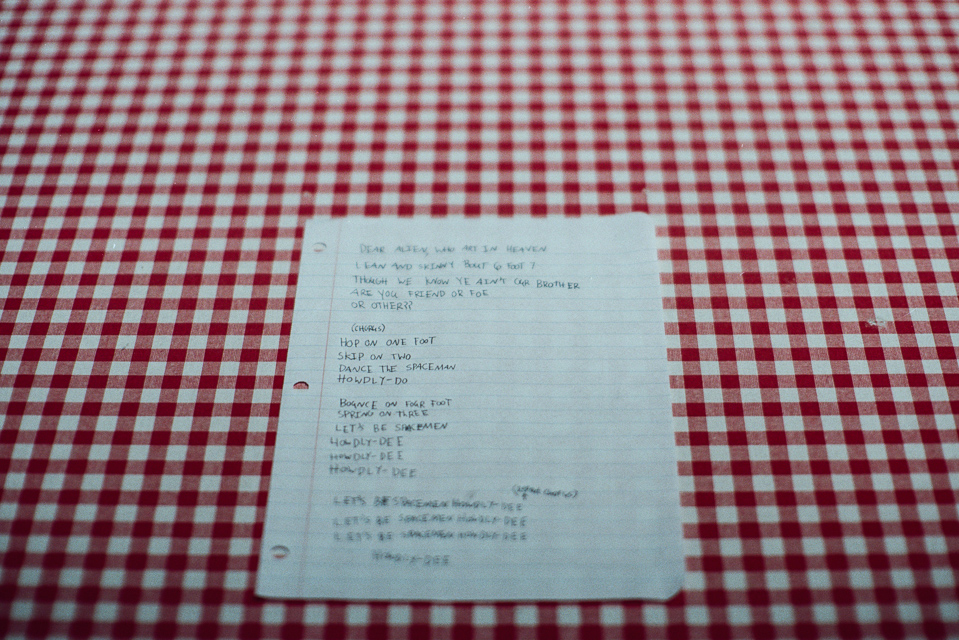 DEAR ALIEN, WHO ART IN HEAVEN
LEAN AND SKINNY BOUT 6 FOOT 7
THOUGH WE KNOW YE AIN'T OUR BROTHER
ARE YOU FRIEND OR FOE
OR OTHER??
(CHORUS)
HOP ON ONE FOOT
SKIP ON TWO
DANCE THE SPACEMAN
HOWDLY-DO
BOUNCE ON FOUR FOOT
SPRING ON THREE
LET'S BE SPACEMEN
HOWDLY-DEE
HOWDLY-DEE
HOWDLY-DEE
LET'S BE SPACEMEN HOWDLY-DEE
LET'S BE SPACEMEN HOWDLY-DEE
LET'S BE SPACEMEN HOWDLY-DEE
HOWDLY-DEE